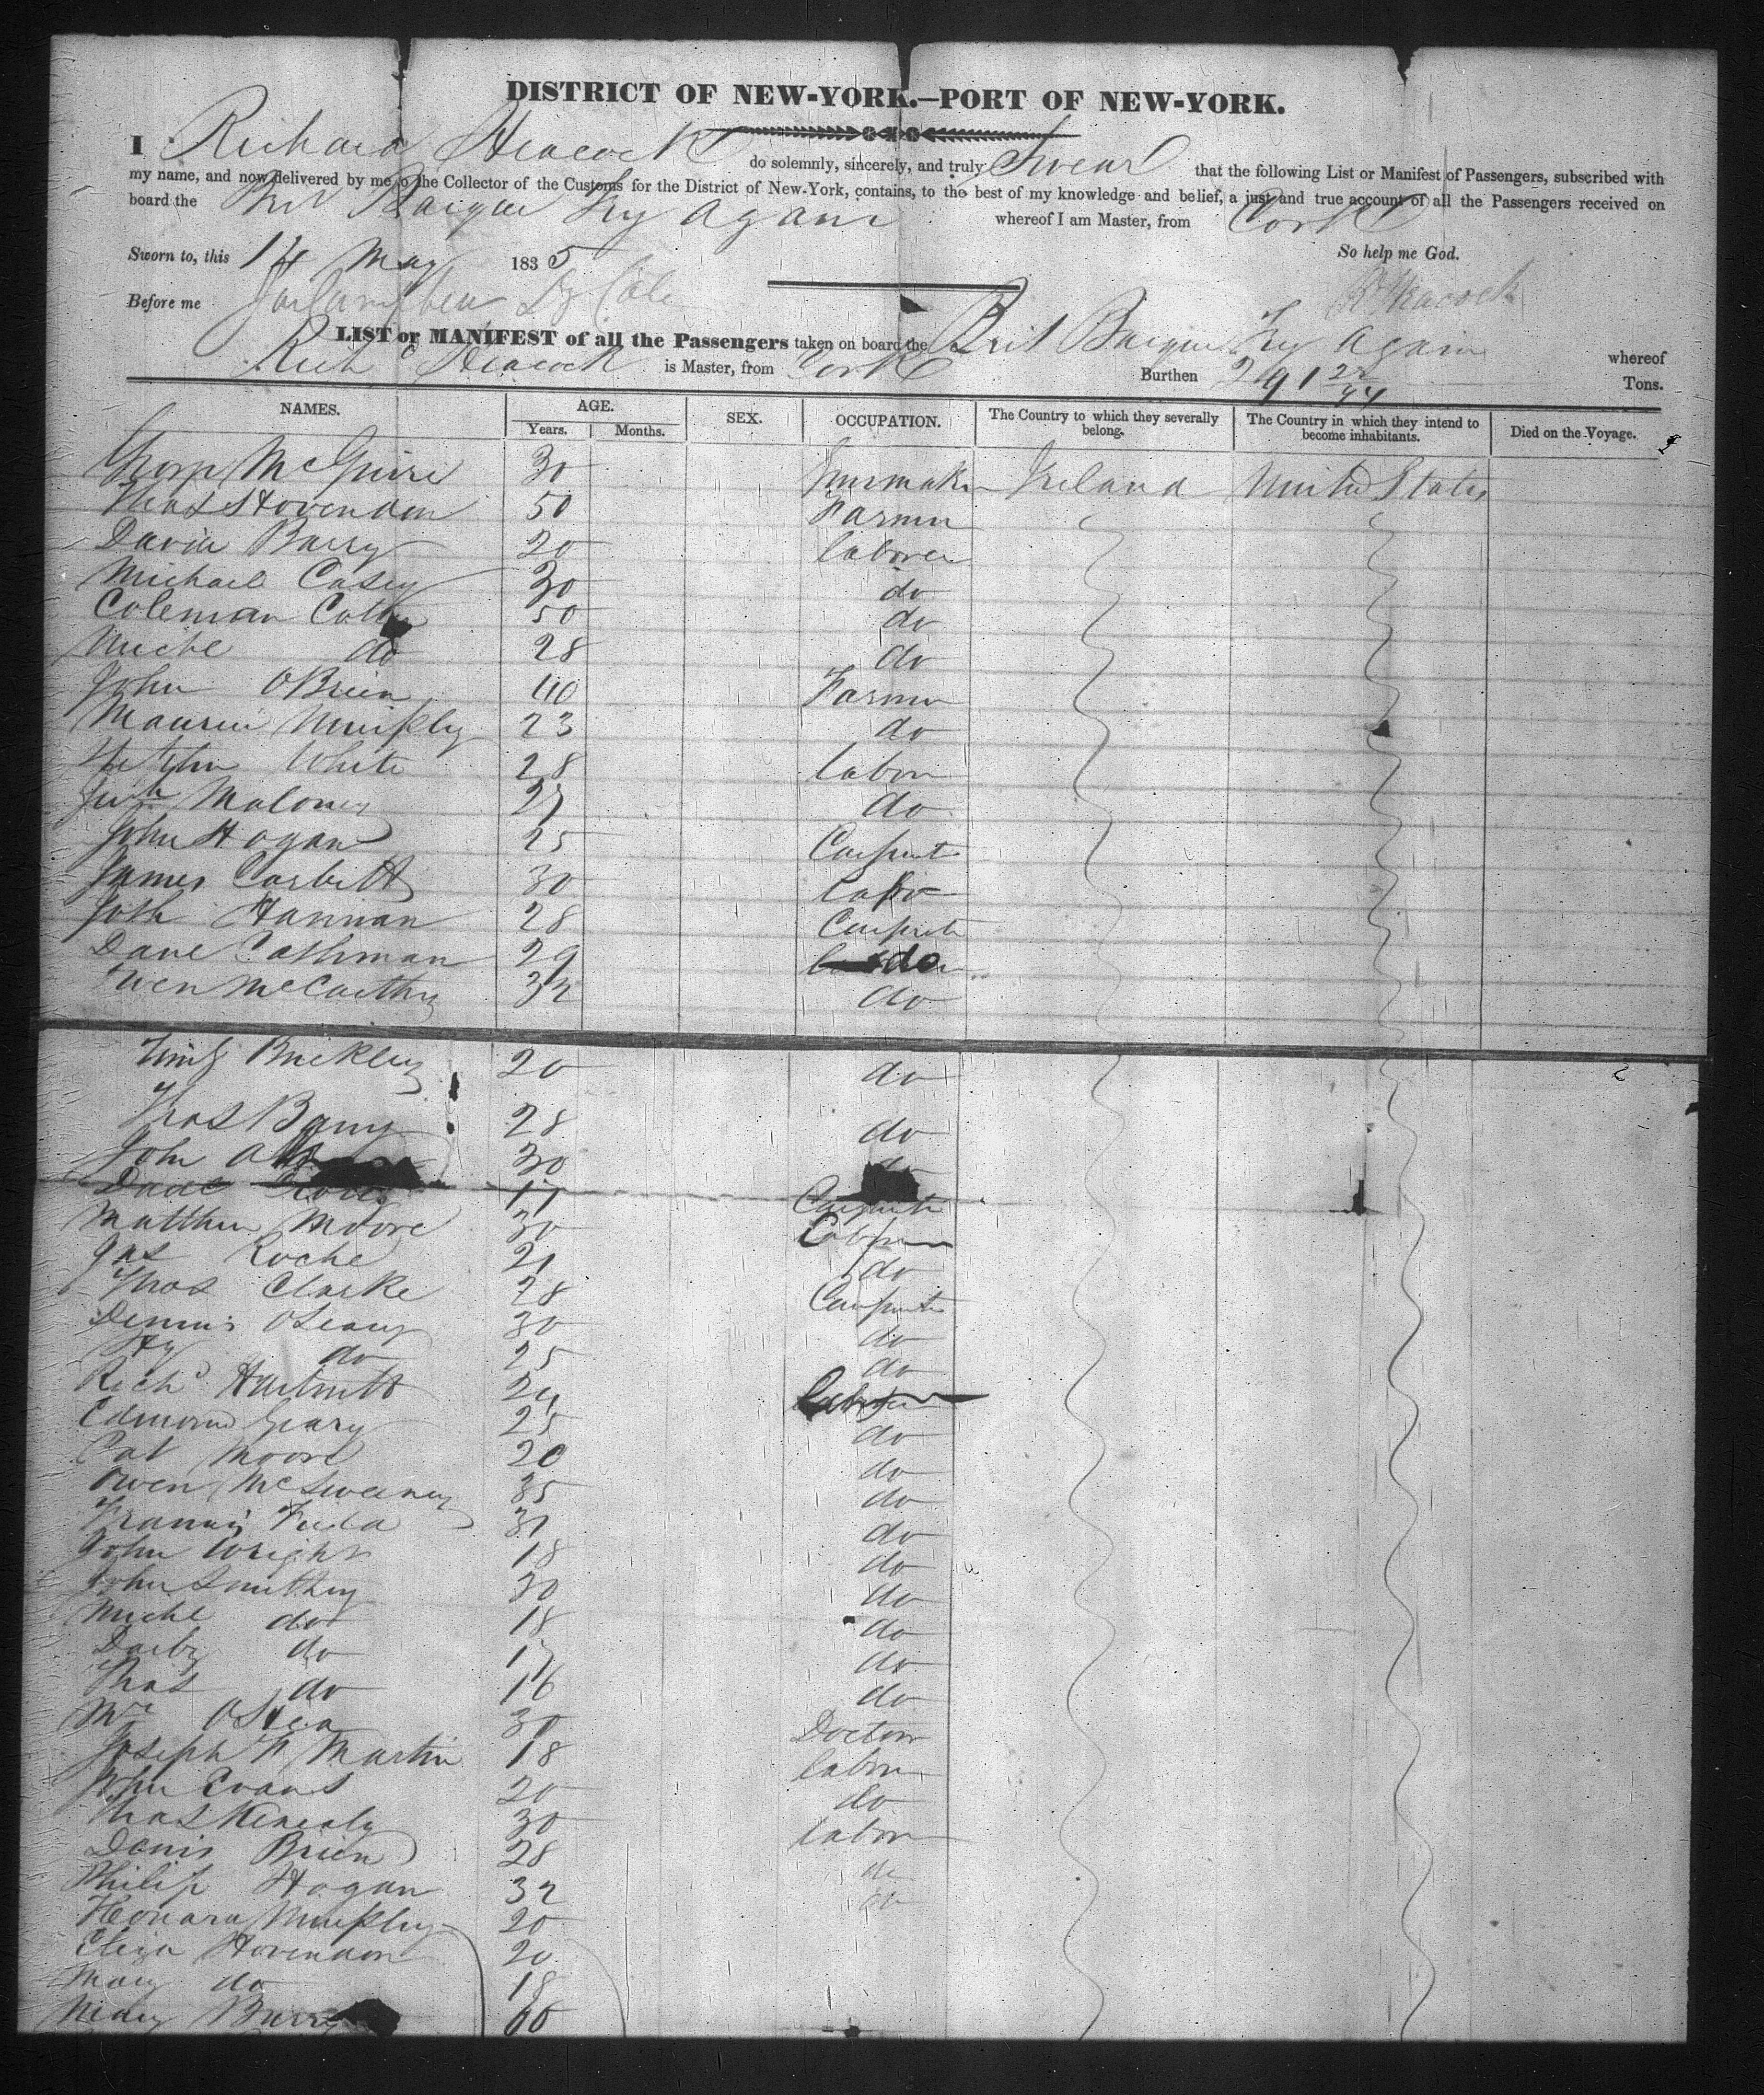 DISTRICT OF NEW-YORK.—PORT OF NEW-YORK.
I Richard Heacock do solemnly, sincerely, and truly Swear that the following List or Manifest of Passengers, subscribed with
my name, and now delivered by me to the Collector of the Customs for the District of New-York, contains, to the best of my knowledge and belief, a just and true account of all the Passengers received on
board the Brit Barque Try Again whereof I am Master, from Cork
Sworn to, this 14 May 1835 So help me God.
Before me R Heacock
LIST or MANIFEST of all the Passengers taken on board the Brit Barque Try Again whereof
Richd Heacock is Master, from Cork Burthen 291 Tons.
NAMES. AGE. SEX. OCCUPATION. The Country to which they severally belong. The Country in which they intend to become inhabitants. Died on the Voyage.
Years. Months.
McGuire 30 Ireland United States
Thos Hovendon 50 Farmer
David Barry 20 laborer
Michael Casey 30 do
Coleman 50 do
Michl do 28 do
John OBrien 40 Farmer
Maurice Murphy 23 do
White 28 labor
Maloney 27 do
John Hogan 25 Carpent
James Corbitt 30 labo
Hannan 28
Cashman 29 do
Owen McCarthy 32 do
2
Timy Buckley 20 do
Thos Barry 28 do
John 30 do
17
Matthew Moore 30
Jas Roche 21 do
Thos Clarke 28
Dennis OLeary 30 do
do 25 do
Richd Hartnett
Edmond Geary 25 do
Pat Moore 20 do
Owen McSweeney 35 do
Francis 31 do
John Wright 18 do
John Smithy 30 do
Michl do 18 do
Darby do 17 do
Thos do 16 do
OShea 30 Doctor
Joseph Martin 18 labor
John Evans 20 do
Thos Kenealy 30 labor
Denis Brien 28 do
Philip Hogan 32 do
Honara Murphy 20
Eliza Hovendon 20
Mary do 18
Mary Barry 60